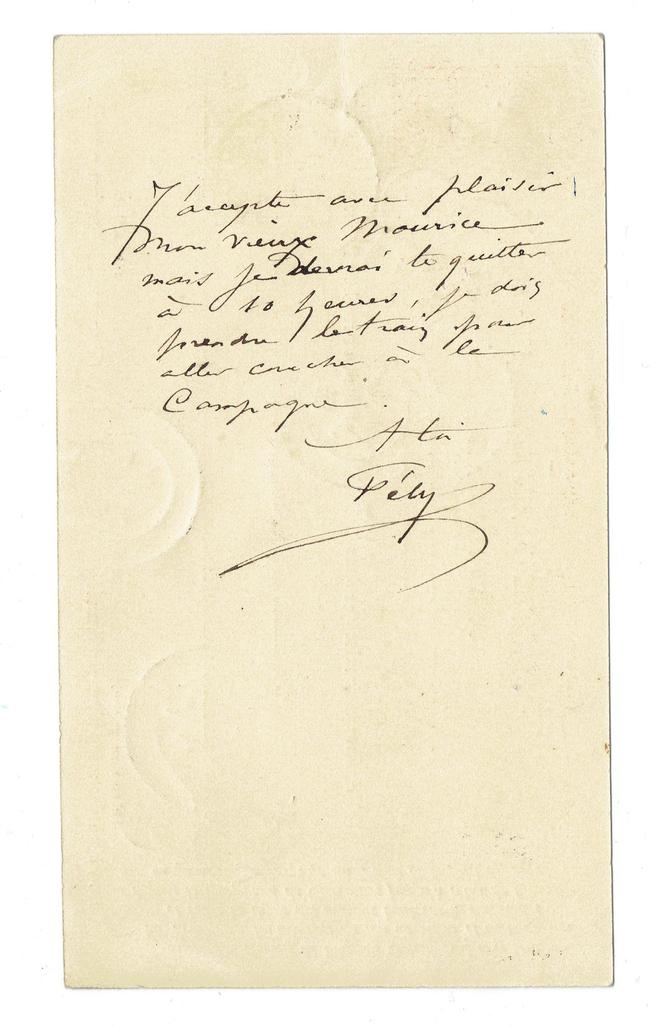 J'accepte avec plaisir
mon vieux Maurice
mais je devrai te quitter
à 10 heures, je dois
prendre le train pour
aller coucher à la
Campagne.
A toi
Fély